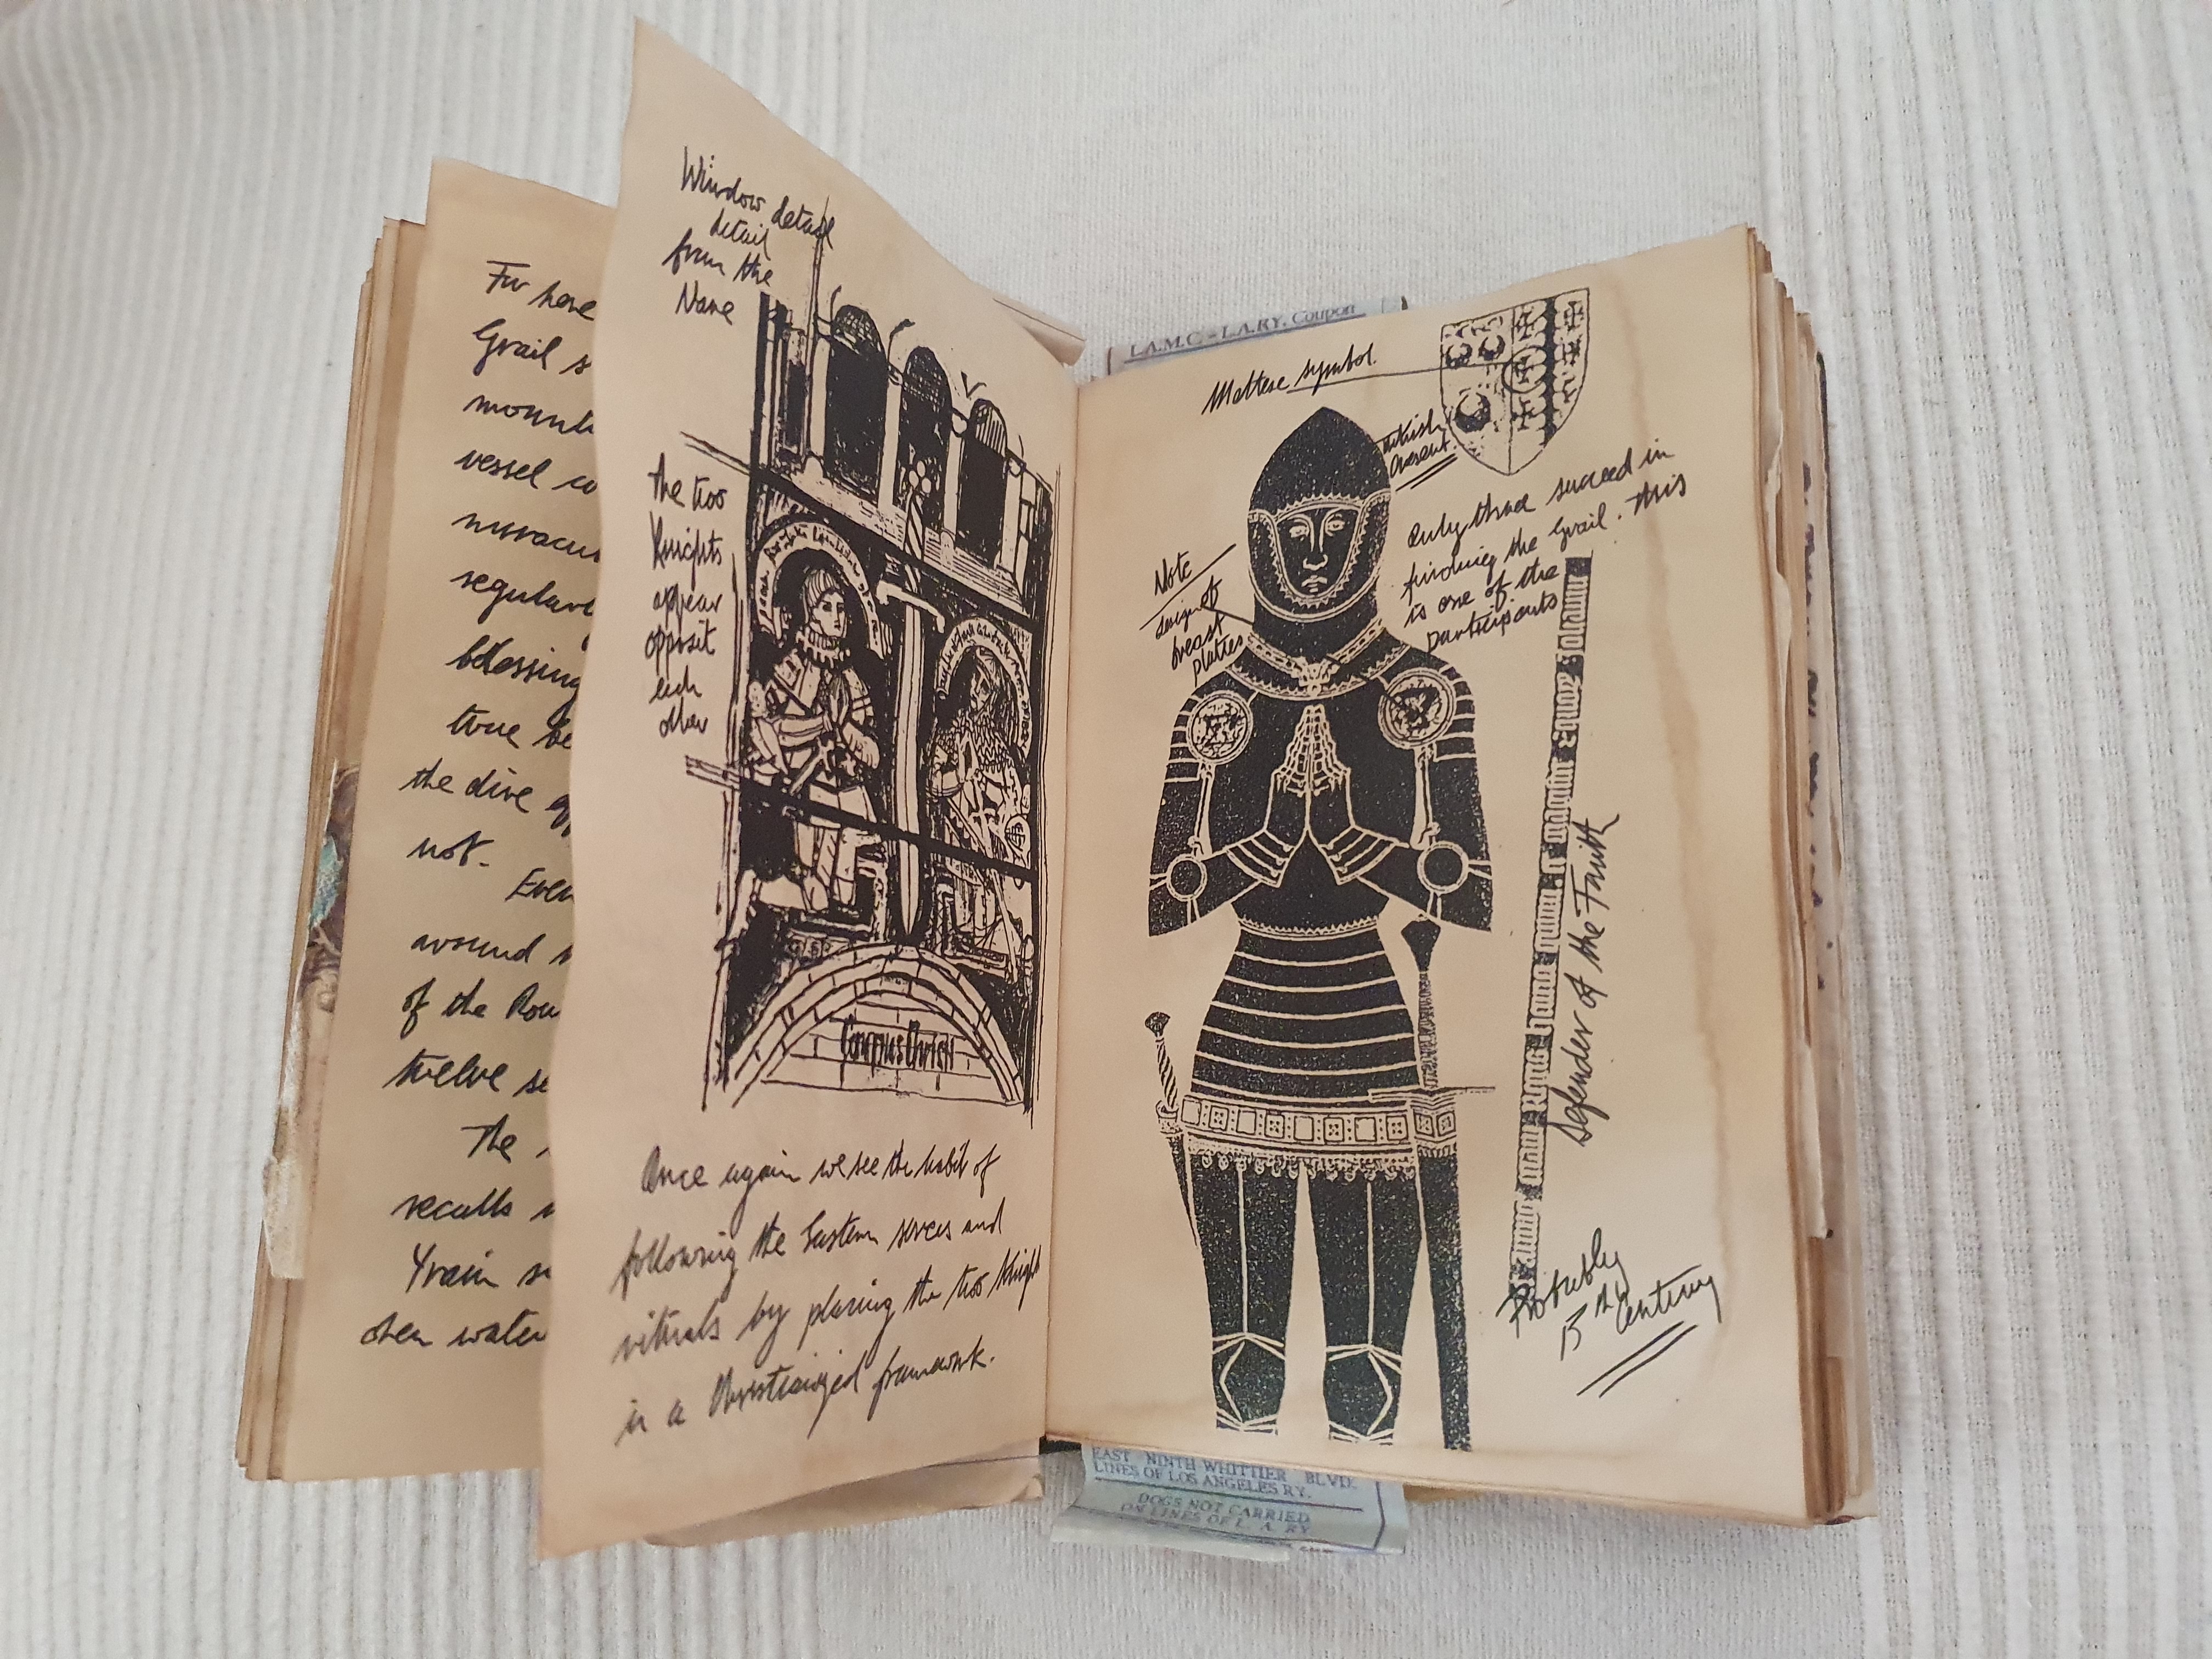 For here
Grail s
mounta
vessel co
miracul
regular
blessing
true be
the dire
not.
Even
around
of the Rou
twelve se
The
recalls
Yvain
When water
Window detail
detail
from the
Nave
The two
Knights
appear
opposit
each
other
Corpus Christi
Once again we see the habit of
following the Eastern and
rituals by placing the two Knight
in a Christianized framework.
L.A.M.C - L.A.RY. Coupon
Maltese symbol.
Turkish
Cresent.
Only three succeed in
finding the Grail. This
is one of the
participants
Note
sign of
breast
plates
Defender of the Faith
Probably
13 th
Century
EAST NINTH WHITTIER BLVD.
LINES OF LOS ANGELES RY.
DOGS NOT CARRIED
ON LINES OF L. A. RY